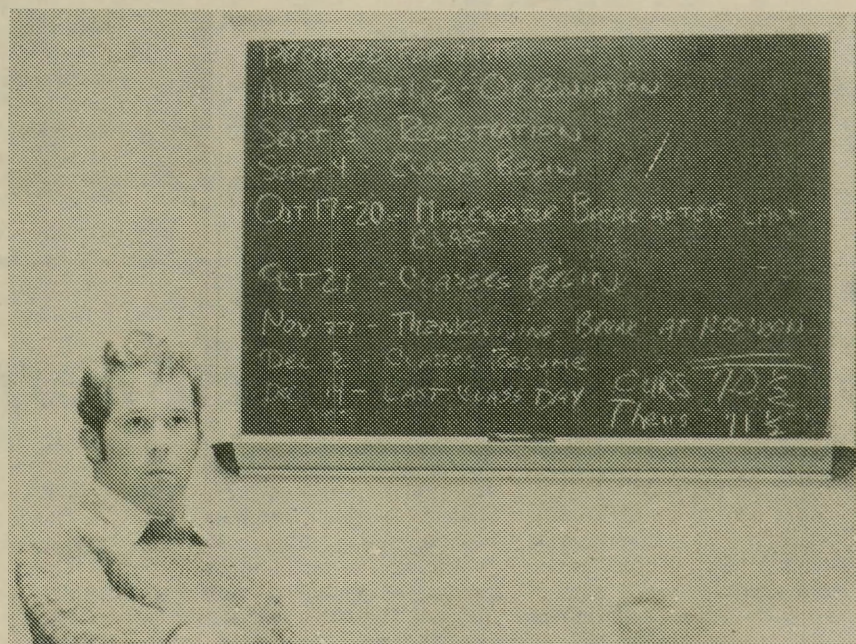 PROPOSED FOR
AUG 31, SEPT 1, 2 - ORIENTATION
SEPT 3 - REGISTRATION
SEPT 4 - CLASSES BEGIN
OCT 17-20 - MIDSEMESTER BREAK AFTER LAST
CLASS
OCT 21 - CLASSES BEGIN
NOV 27 - THANKSGIVING BREAK AT
DEC 2 - CLASSES RESUME
DEC - LAST CLASS DAY
OURS 70
Theirs 71